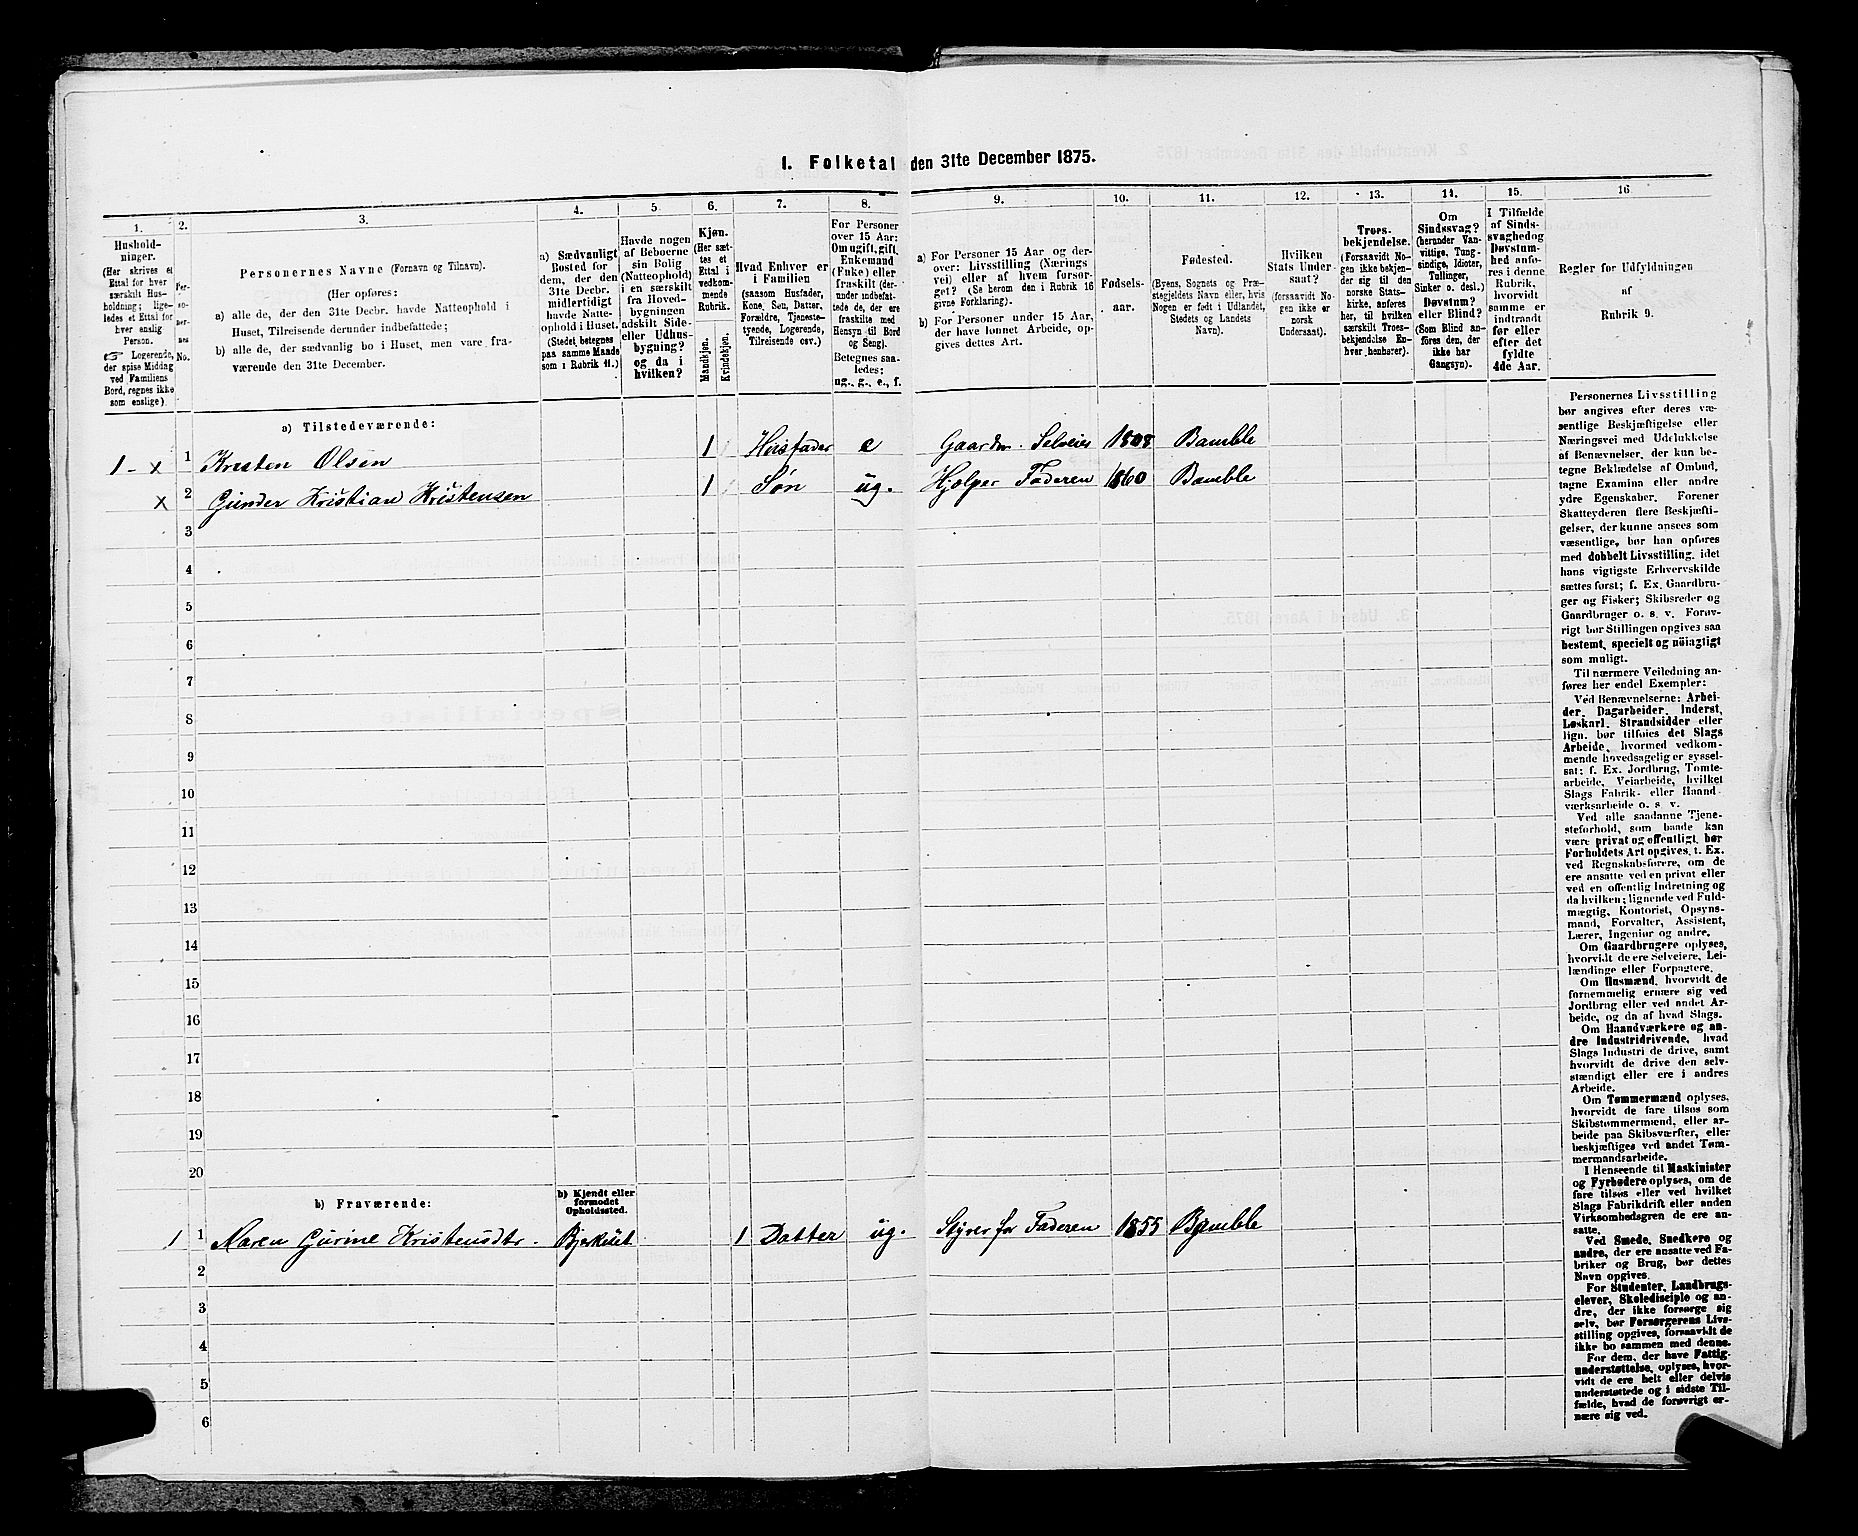 1. Folketal den 31te December 1875.
1.
2.
3.
4.
5.
6.
7.
8.
9.
10.
11.
12.
13.
14.
15.
16
Hushold-
ninger.
(Her skrives et
Ettal for hver
særskilt Hus-
holdning; lige-
ledes et Ettal for
hver enslig
Person.
☞ Logerende,
der spise Middag
ved Familiens
Bord, regnes ikke
som enslige).
Per-
so-
ner-
nes
No.
Personernes Navne (Fornavn og Tilnavn).
(Her opføres:
a) alle de, der den 31te Decbr. havde Natteophold i
Huset, Tilreisende derunder indbefattede;
b) alle de, der sædvanlig bo i Huset, men vare fra-
værende den 31te December.
a) Sædvanligt
Bosted for
dem, der den
31te Decbr.
midlertidigt
havde Natte-
ophold i Huset.
(Stedet betegnes
paa samme Maade
som i Rubrik 11.)
Havde nogen
af Beboerne
sin Bolig
(Natteophold)
i en særskilt
fra Hoved-
bygningen
adskilt Side-
eller Udhus-
bygning?
og da i
hvilken?
Kjøn.
(Her sæt-
tes et
Ettal i
vedkom-
mende
Rubrik.
Mandkjøn.
Kvindekjøn.
Hvad Enhver er
i Familien
(saasom Husfader,
Kone, Søn, Datter,
Forældre, Tjeneste-
tyende, Logerende,
Tilreisende osv.)
For Personer
over 15 Aar:
Om ugift, gift,
Enkemand
(Enke) eller
fraskilt (der-
under indbefat-
tede de, der ere
fraskilte med
Hensyn til Bord
og Seng).
Betegnes saa-
ledes:
ug., g., e., f.
a) For Personer 15 Aar og der-
over: Livsstilling (Nærings
vei) eller af hvem forsør-
get? (Se herom den i Rubrik 16
givne Forklaring).
b) For Personer under 15 Aar,
der have lønnet Arbeide, op-
gives dettes Art.
Fødsels-
aar.
Fødested.
(Byens, Sognets og Præ-
stegjeldets Navn eller, hvis
Nogen er født i Udlandet,
Stedets og Landets
Navn).
Hvilken
Stats Under-
saat?
(forsaavidt No-
gen ikke er
norsk
Undersaat).
Troes-
bekjendelse.
(Forsaavidt No-
gen ikke bekjen-
der sig til den
norske Stats-
kirke, anføres
her, til hvilken
særskilt Troes-
bekjendelse En-
hver henhører).
Om
Sindssvag?
(herunder Van-
vittige, Tung-
sindige, Idioter,
Tullinger,
Sinker o. desl.)
Døvstum?
eller Blind?
(Som Blind an-
føres den, der
ikke har
Gangsyn).
I Tilfælde
af Sinds-
svaghed og
Døvstum-
hed anfø-
res i denne
Rubrik,
hvorvidt
samme er
indtraadt
før eller
efter det
fyldte
4de Aar.
Regler for Udfyldningen
af
Rubrik 9.
a) Tilstedeværende:
1 - x 1 Kristen Olsen 1 Husfader e Gaardm. Selveier 1808 Bamble
x 2 Gunder Kristian Kristensen 1 Søn ug. Hjælper Faderen 1860 Bamble
3
4
5
6
7
8
9
10
11
12
13
14
15
16
17
18
19
20
b) Fraværende:
b) Kjendt eller
formodet
Opholdssted.
1 1 Karen Gurine Kristensdtr. 1 Datter ug. Styrer for Faderen 1855 Bamble
2
3
4
5
6
Personernes Livsstilling
bør angives efter deres væ-
sentlige Beskjæftigelse eller
Næringsvei med Udelukkelse
af Benævnelser, der kun be-
tegne Beklædelse af Ombud,
tagne Examina eller andre
ydre Egenskaber. Forener
Skatteyderen flere Beskjæfti-
gelser, der kunne ansees som
væsentlige, bør han opføres
med dobbelt Livsstilling, idet
hans vigtigste Erhvervskilde
sættes først; f. Ex. Gaardbru-
ger og Fisker; Skibsreder og
Gaardbruger o. s. v. Forøv-
rigt bør Stillingen opgives saa
bestemt, specielt og nøiagtigt
som muligt.
Til nærmere Veiledning an-
føres her endel Exempler:
Ved Benævnelserne: Arbei-
der, Dagarbeider, Inderst,
Løskarl, Strandsidder eller
lign. bør tilføies det Slags
Arbeide, hvormed vedkom-
mende hovedsagelig er syssel-
sat; f. Ex. Jordbrug, Tomte-
arbeide, Veiarbeide, hvilket
Slags Fabrik- eller Haand
værksarbeide o. s. v.
Ved alle saadanne Tjene-
steforhold, som baade kan
være privat og offentligt, bør
Forholdets Art opgives, t. Ex.
ved Regnskabsførere, om de
ere ansatte ved en privat eller
ved en offentlig Indretning og
da hvilken; lignende ved Fuld-
mægtig, Kontorist, Opsyns-
mand, Forvalter, Assistent,
Lærer, Ingeniør og andre.
Om Gaardbrugere oplyses,
hvorvidt de ere Selveiere, Lei-
lændinge eller Forpagtere.
Om Husmænd, hvorvidt de
fornemmelig ernære sig ved
Jordbrug eller ved andet Ar-
beide, og da af hvad Slags.
Om Haandværkere og an-
dre Industridrivende, hvad
Slags Industri de drive, samt
hvorvidt de drive den selv-
stændigt eller ere i andres
Arbeide.
Om Tømmermænd oplyses,
hvorvidt de fare tilsøs som
Skibstømmermænd, eller ar-
beide paa Skibsværfter, eller
beskjæftiges ved andet Tøm-
mermandsarbeide.
I Henseende til Maskinister
og Fyrbødere oplyses, om de
fare tilsøs eller ved hvilket
Slags Fabrikdrift eller anden
Virksomhedsgren de ere an-
satte.
Ved Smede, Snedkere og
andre, der ere ansatte ved Fa-
briker og Brug, bør dettes
Navn opgives.
For Studenter, Landbrugs-
elever, Skoledisciple og an-
dre, der ikke forsørge sig
selv, bør Forsørgerens Livs-
stilling opgives, forsaavidt de
ikke bo sammen med denne.
For dem, der have Fattig-
understøttelse, oplyses, hvor-
vidt de ere helt eller delvis
understøttede og i sidste Til-
fælde, hvad de forøvrigt er-
nære sig ved.